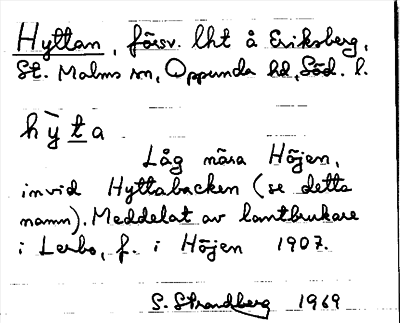 Hyttan, försv. lht å Eriksberg,
St. Malms sn, Oppunda hd, Söd. l.
hỳta
Låg nära Höjen,
invid Hyttabacken (se detta
namn). Meddelat av lantbrukare
i Lerbo, f. i Höjen 1907.
S. Strandberg 1969